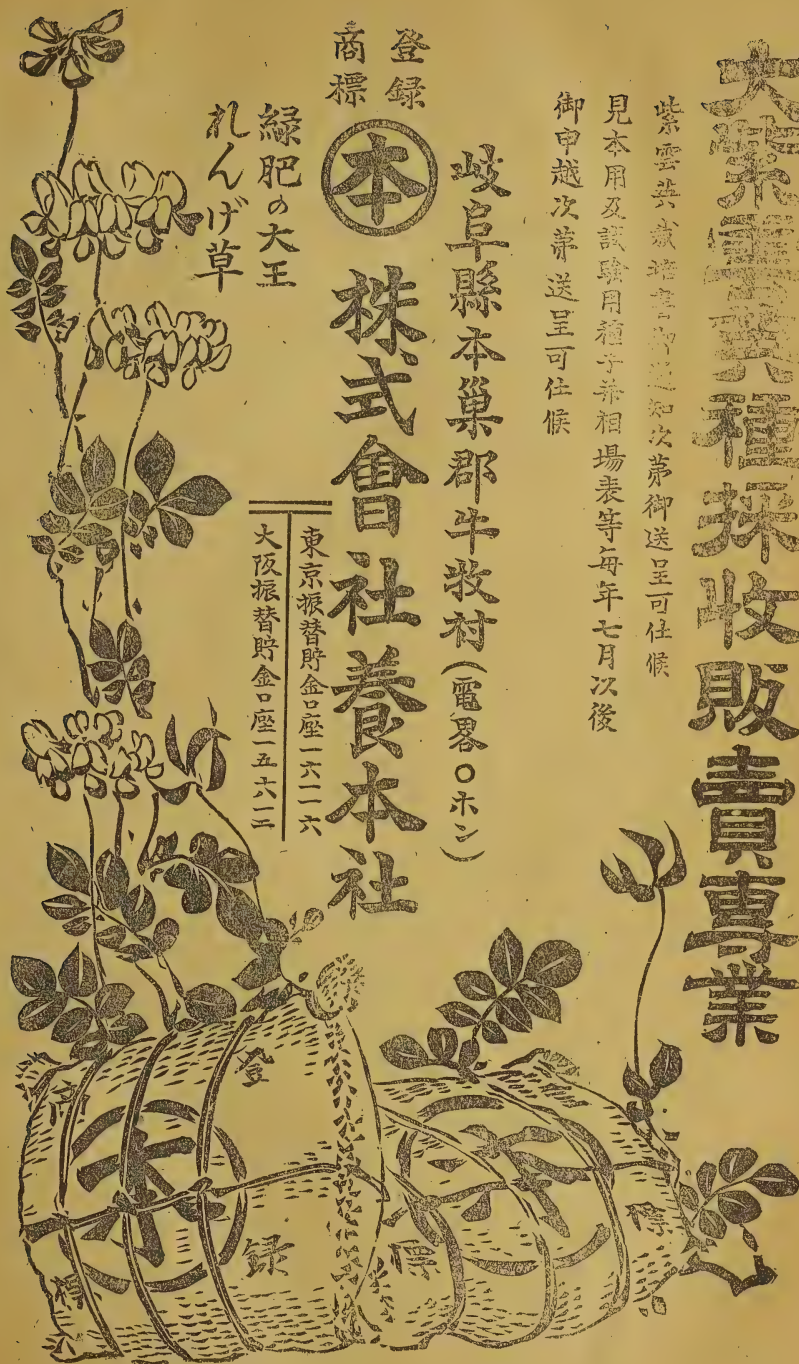 大紫雲英種採收販賣専業
紫雲英栽培書御通知次第御送呈可仕候
見本用及試験用種子并相場表等毎年七月次後
御申越次第送呈可仕候
岐阜縣本巣郡牛牧村(電畧〇ホン)
登録
商標
本
株式會社養本社
東京振替貯金口座一六一一六
大阪振替貯金口座一五六一二
緑肥の大王
れんげ草
登
録
商
標
本
標
本
標